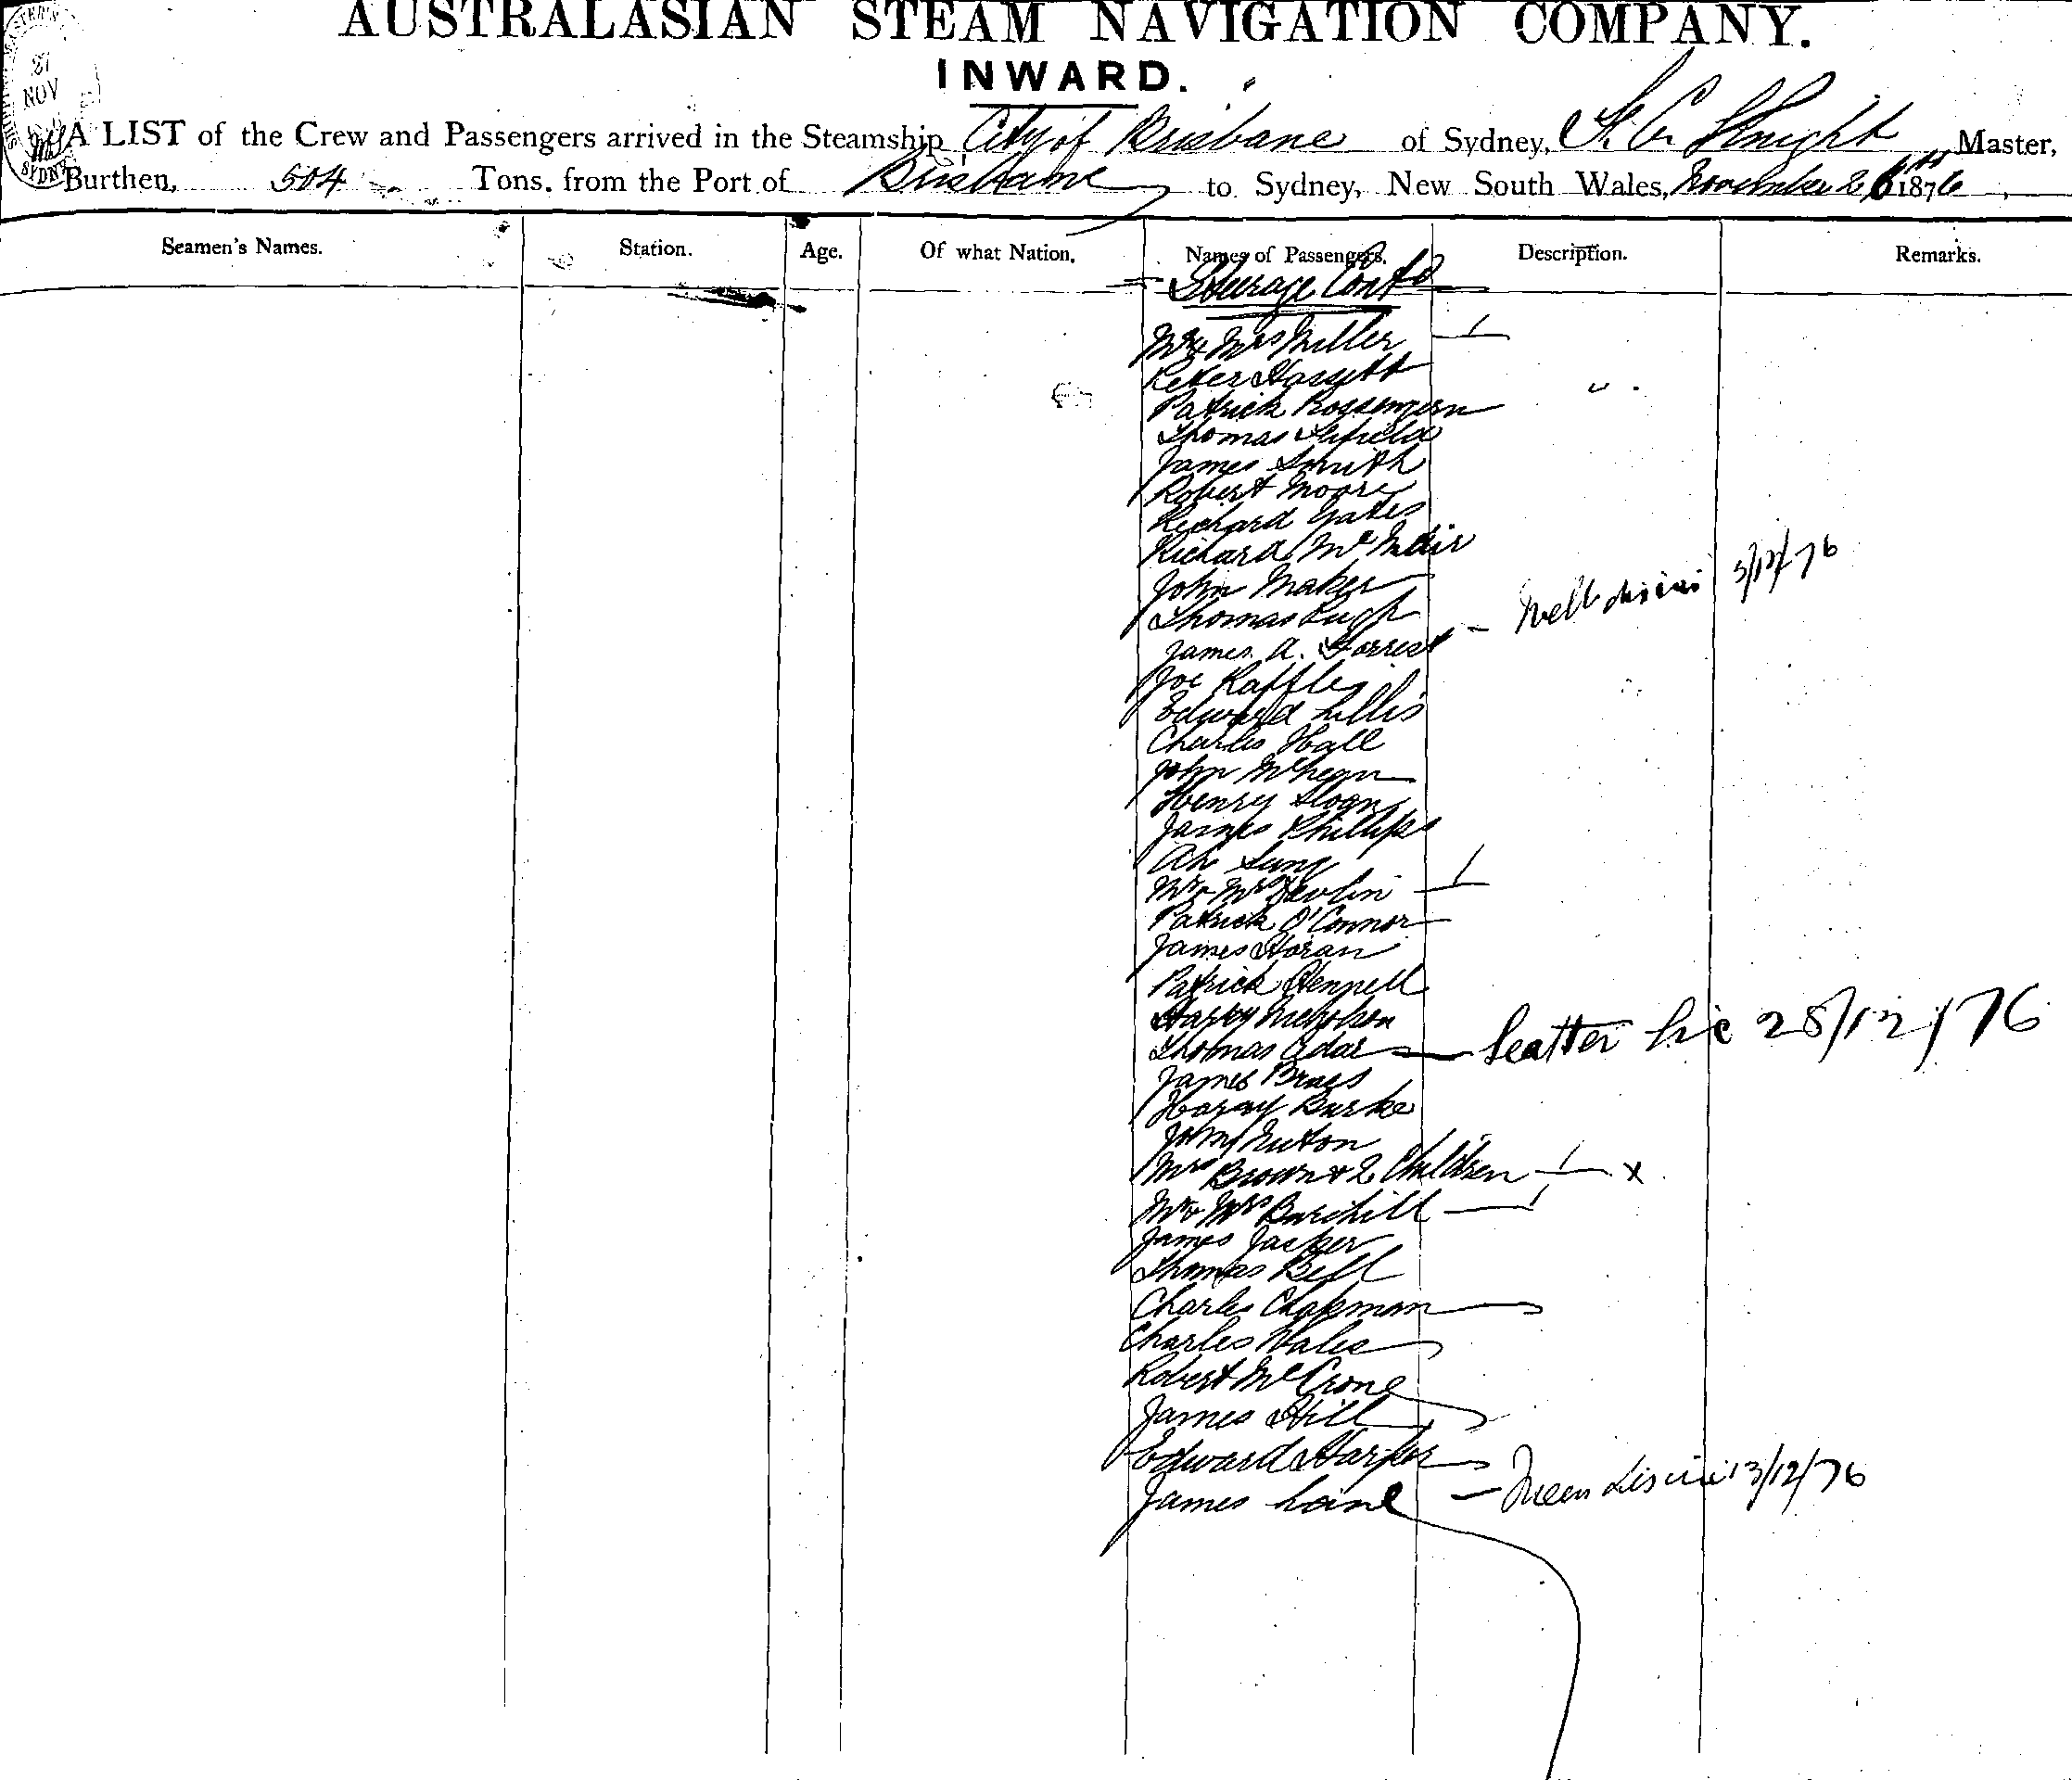 AUSTRALASIAN STEAM NAVIGATION COMPANY.
INWARD.
21 NOV
SYDNEY
A LIST of the Crew and Passengers arrived in the Steamship City of Brisbane of Sydney, Knight Master,
Burthen, 504 Tons. from the Port of Brisbane to Sydney, New South Wales, November 26th 1876
Seamen's Names. Station. Age. Of what Nation. Names of Passengers. Description. Remarks.
Steerage Contd
Mr & Mrs Miller
Peter Hassett
Patrick
Thomas
James Smith
Robert Moore
Richard Yates
Richard McNair
John Maher
Thomas Pugh
James A. Forrest 5/12/76
Joe Raffles
Edward Lillis
Charles Hall
John
Henry Sloan
James Phillips
Ah Sung
Mr & Mrs Devlin
Patrick O'Connor
James Horan
Patrick Hennell
Harry Nicholson
Thomas Adar 28/12/76
James
Harry Burke
John
Mrs Brown & 2 Children x
Mr & Mrs
James Jasper
Thomas Bell
Charles Chapman
Charles Wales
Robert McCrone
James Hill
Edward Harper
James Lane 13/12/76